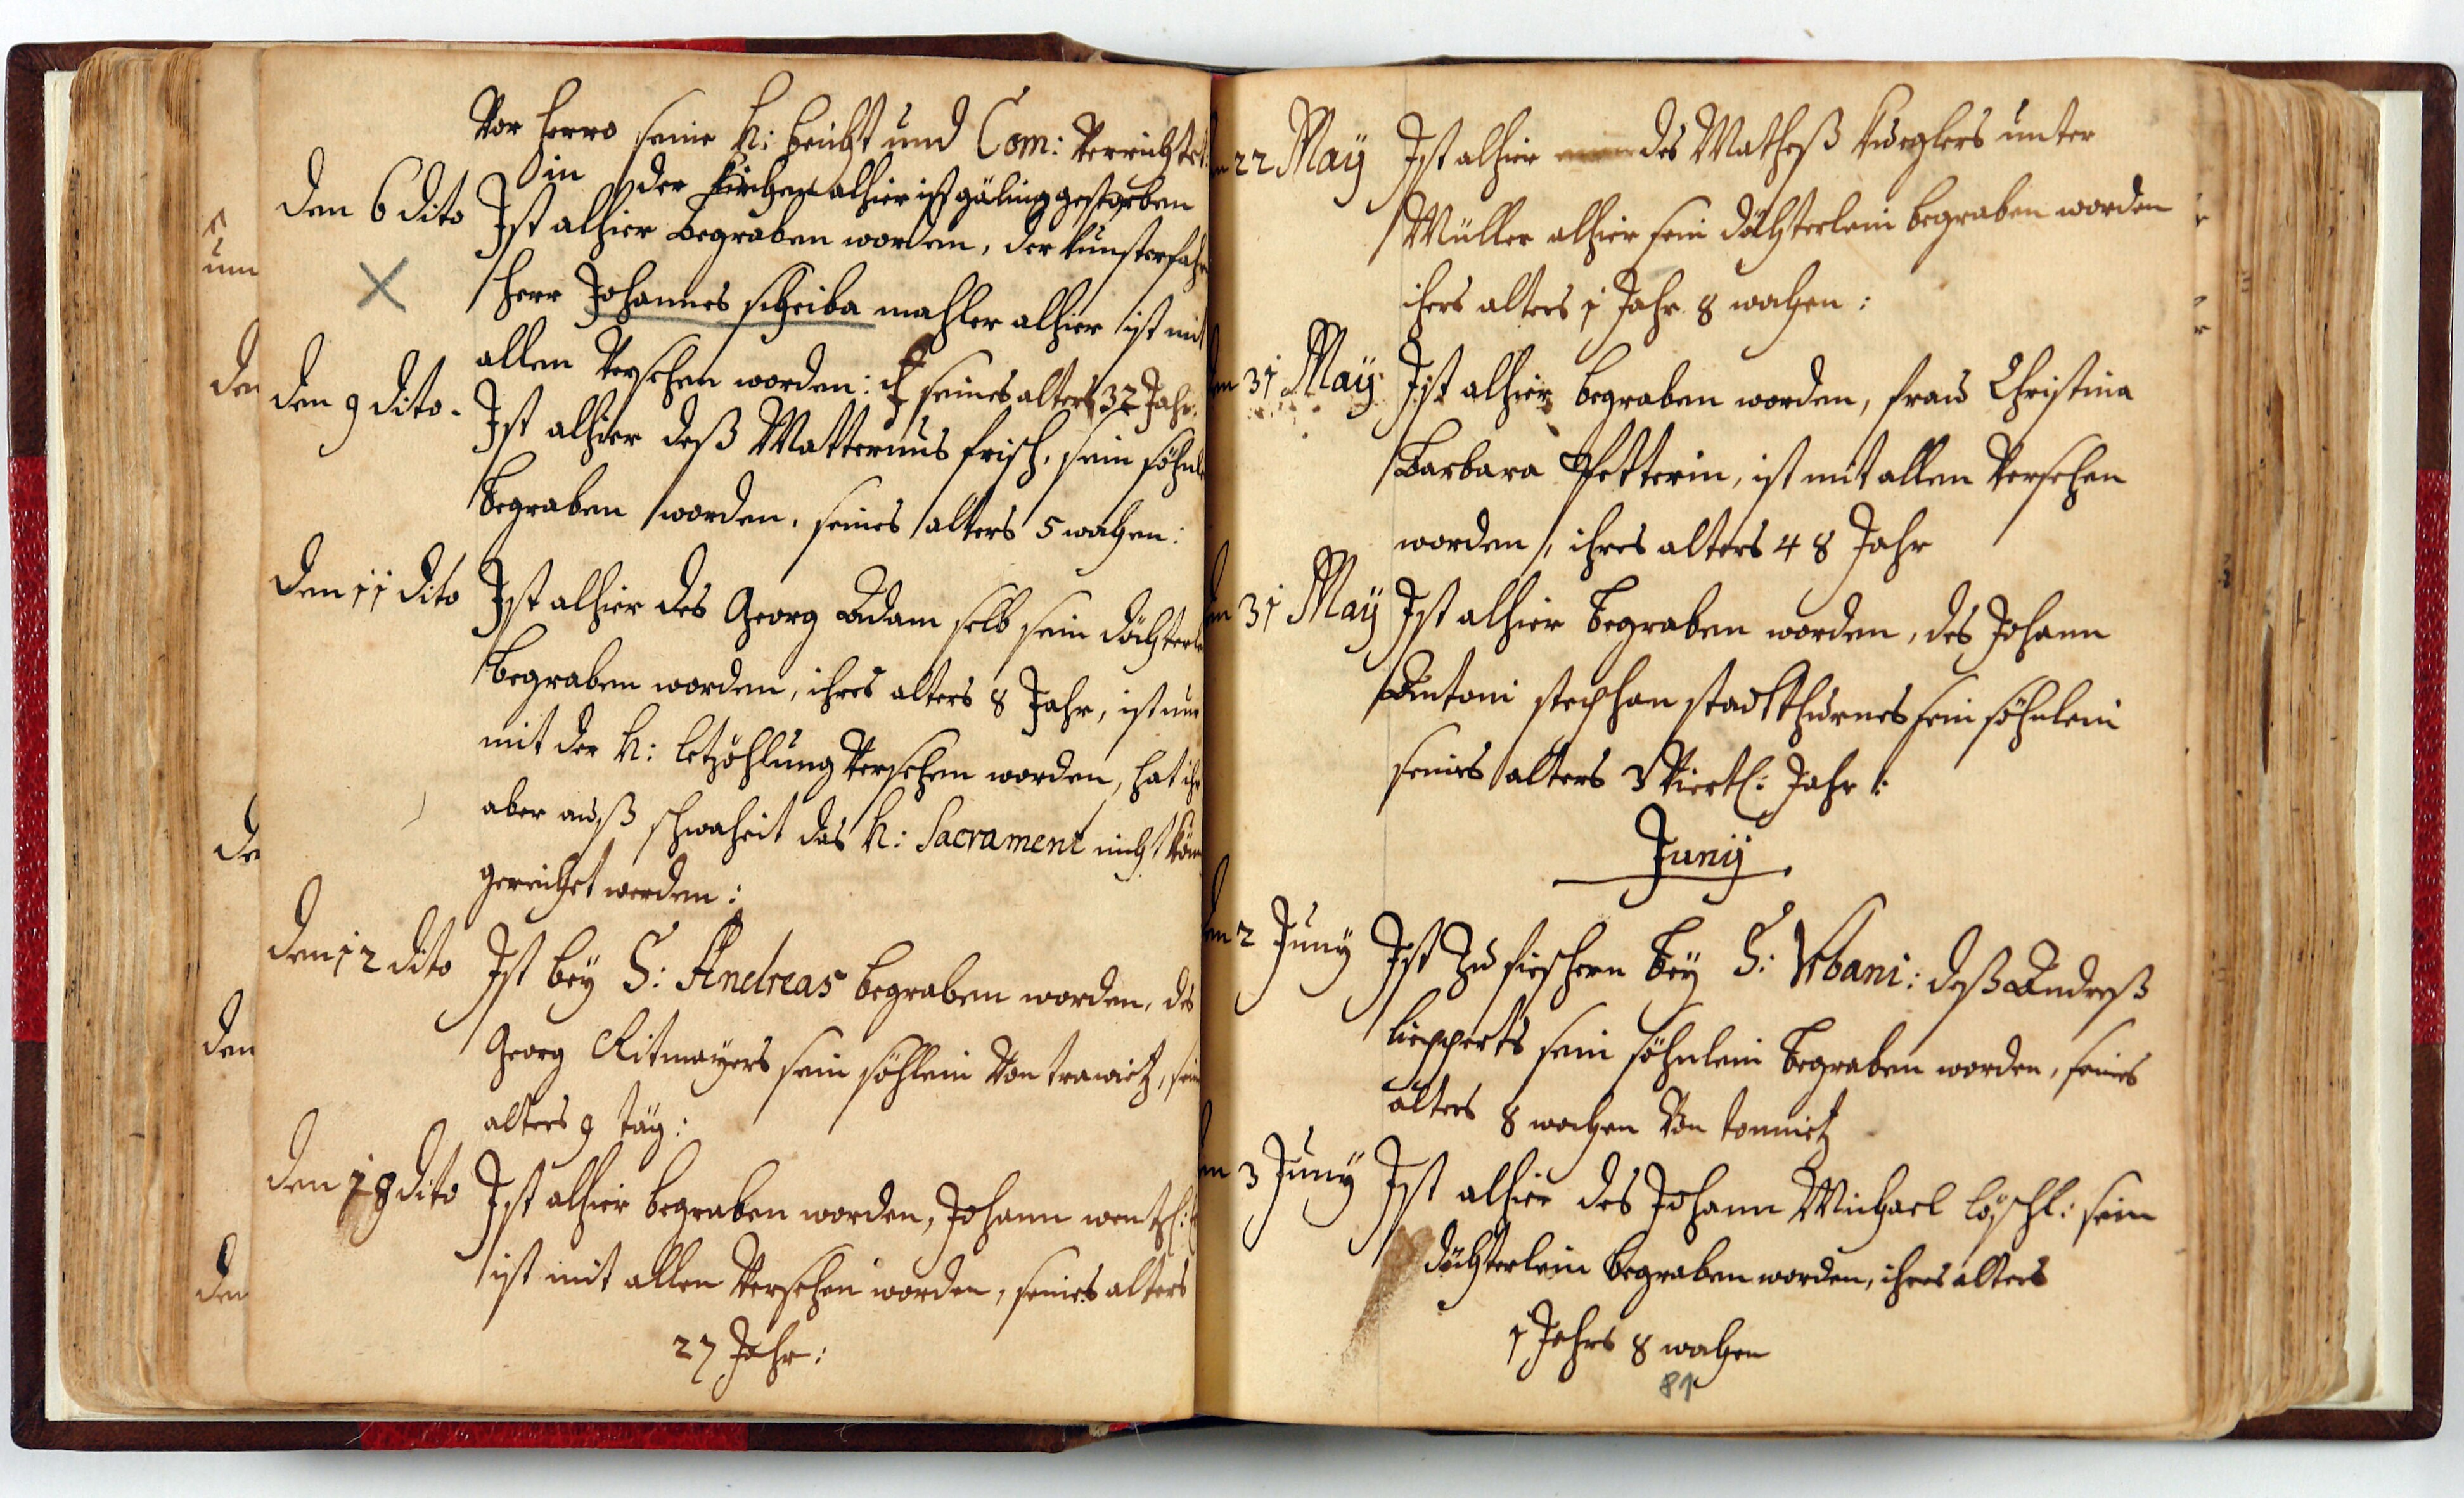 Vor herro seine h: beicht und Com: verrichtet
in der Kirchen alhier ist gäling gestorben
den 6 dito Ist alhier begraben worden, der Kunsterfahr
herr Johannes scheiba mahler alhier ist mit
allem versehen worden: seines alters 32 Jahr.
den 9 dito. Ist alhier deß Matternus frisch, sein söhnle
begraben worden, seines alters 5 wochen:
den 11 dito Ist alhier des Georg Adam selb sein döchterle
begraben worden, ihres alters 8 Jahr, ist nur
mit der h: letzöhlung versehen worden, hat ihr
aber auß schwaheit das h: Sacrament nicht kön
gereichet werden:
den 12 dito Ist bey S: Andreas begraben worden, des
Georg Ritmayers sein söhlein von trawietz, sein
alters 9 täg:
den 18 dito Ist alhier begraben worden, Johann wentzl:
ist mit allen versehen worden, seines alters
27 Jahr:
22 Maÿ Ist alhier des Matheß Kueglers unter
Müller alhier sein döchterlein begraben worden
ihers alters 1 Jahr 8 wochen:
31 Maÿ Ist alhier begraben worden, frau Christina
Barbara Petterin, ist mit allem versehen
worden, ihres alters 48 Jahr
31 Maÿ Ist alhier begraben worden, des Johann
Antoni stephan stadtthurnes sein söhnlein
seines alters 3 Viertl: Jahr:
Junij
2 Juny Ist zu fieschern bey S: Vrbani: deß Andreß
liepperts sein söhnlein begraben worden, seines
alters 8 wochen von tonnietz
3 Juny Ist alhier des Johann Michael löschl: sein
döchterlein begraben worden, ihres alters
1 Jahrs 8 wochen
81